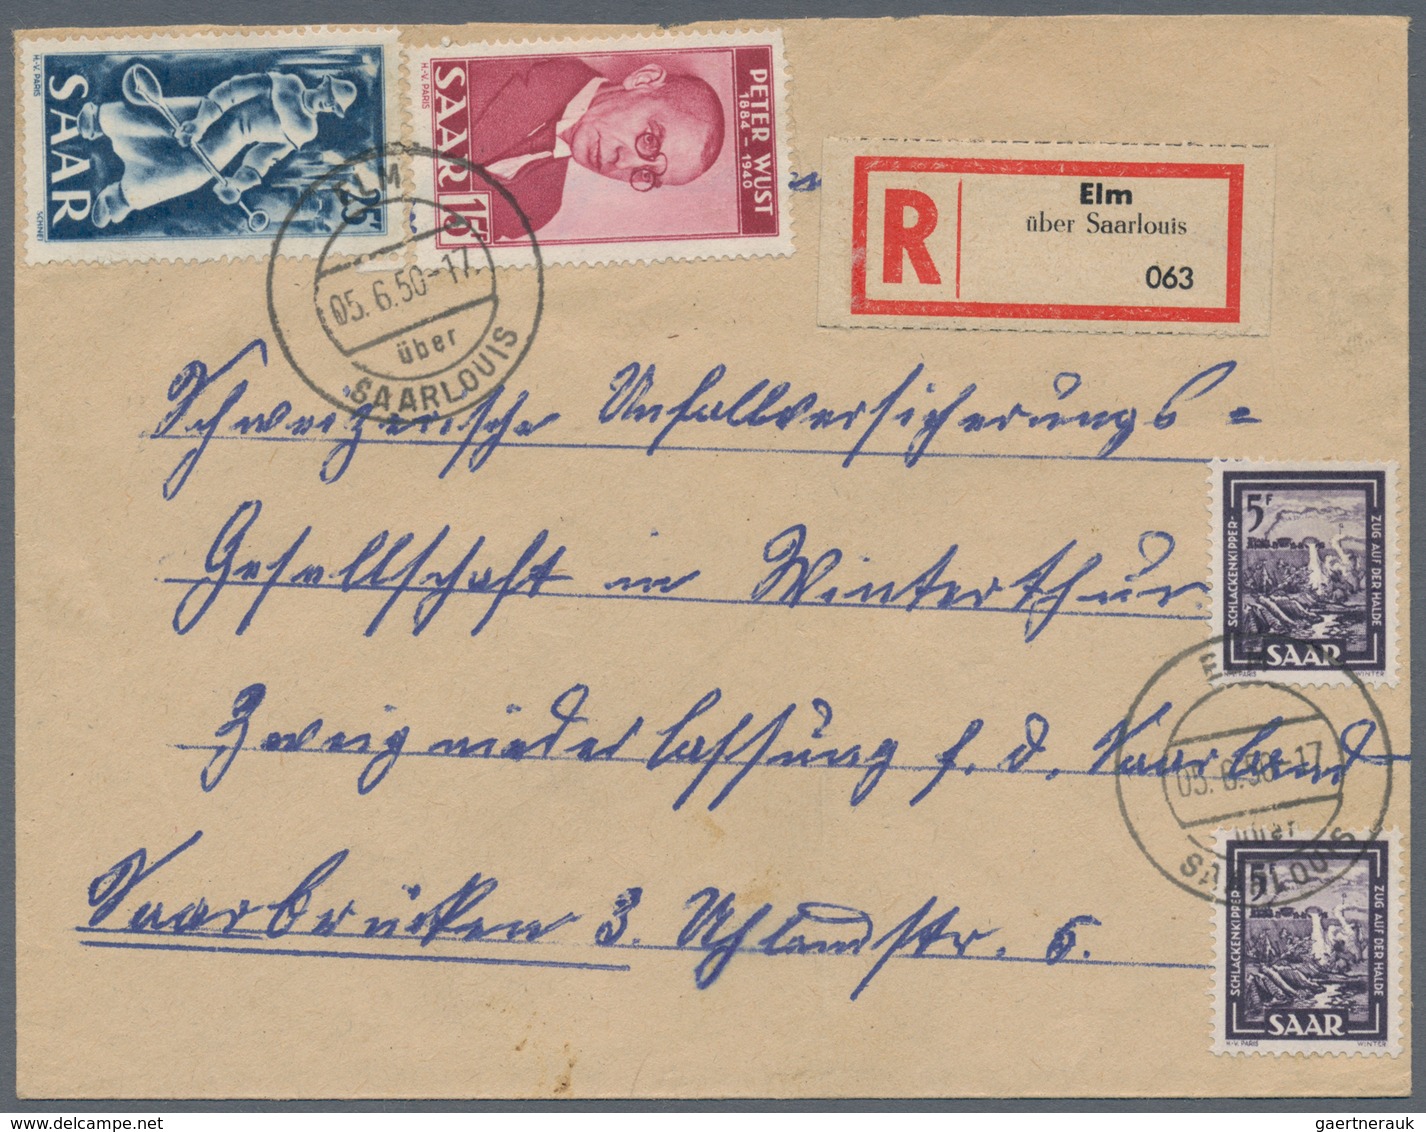 H.-V. PARIS
SAAR
25F
H.-V. PARIS
SAAR 15F
PETER WUST
1884 – 1940
R
Elm
über Saarlouis
063
ELM
05.6.50-17
über
SAARLOUIS
Schweizerische Unfallversicherungs =
Gesellschaft in Winterthur.
Zweigniederlassung f. d. Saarland
Saarbrücken 3. Uhlandstr. 6.
5F
SCHLACKENKIPPER-
ZUG AUF DER HALDE
SAAR
H.-V. PARIS WINTER
ELM
05.6.50-17
über
SAARLOUIS
5F
SCHLACKENKIPPER-
ZUG AUF DER HALDE
SAAR
H.-V. PARIS WINTER
gaertnerauk